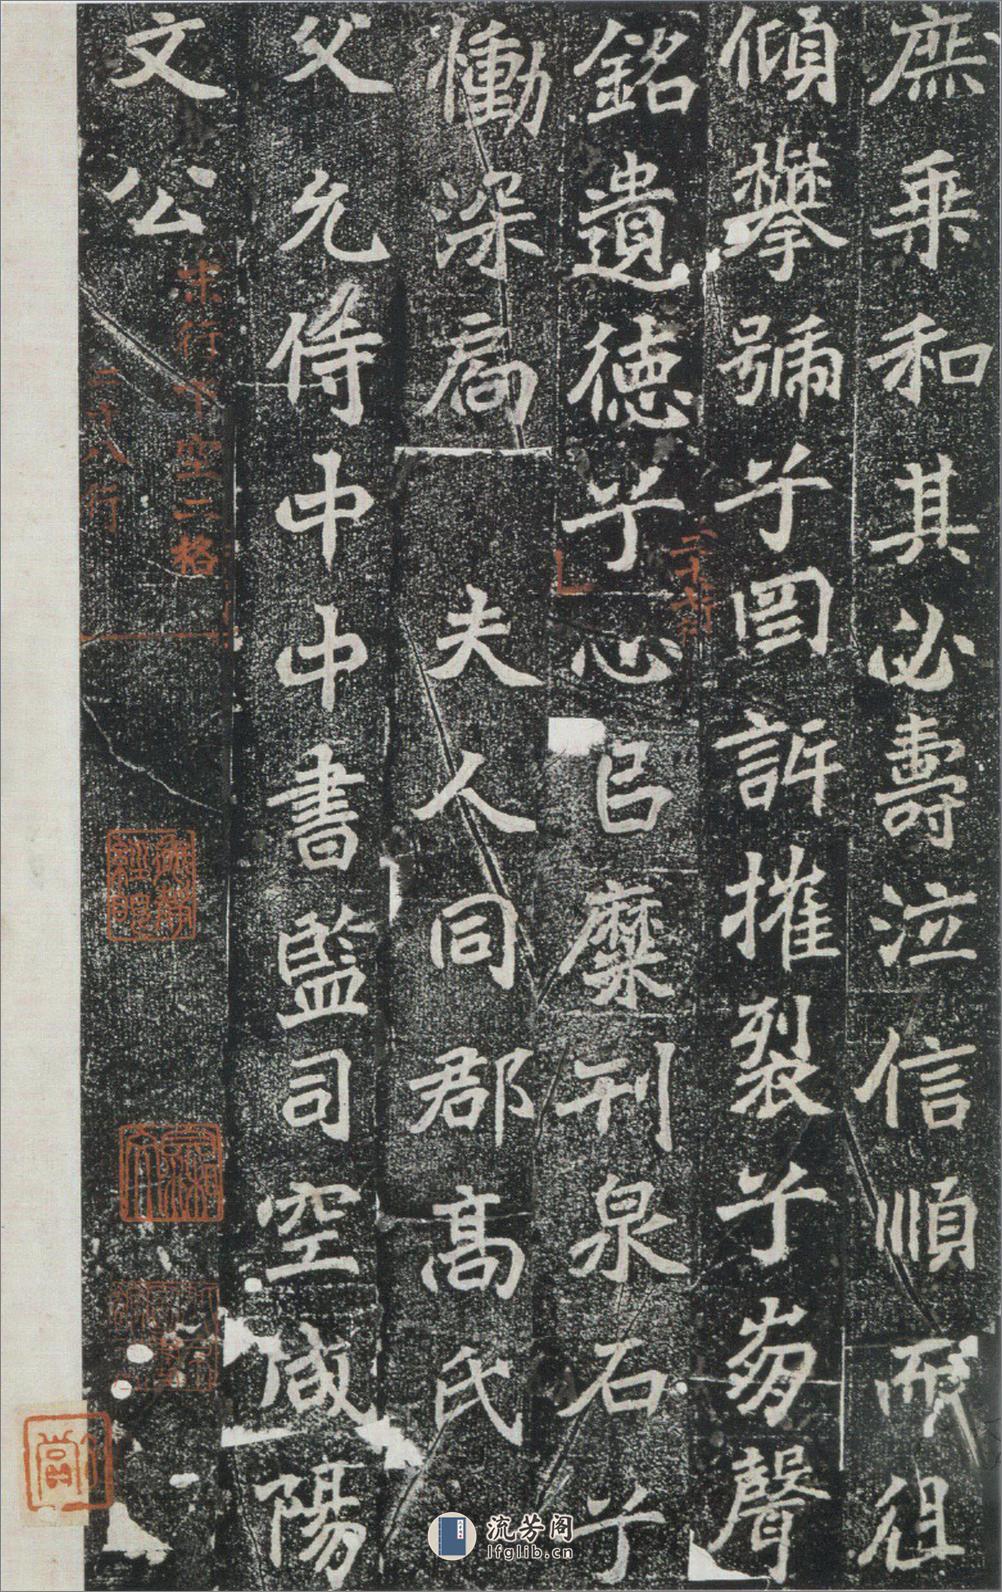 庶乘和其必壽泣信順而徂
傾攀號兮罔訴摧裂兮崩聲
銘遺德兮心已糜刊泉石兮
慟深扃 夫人同郡高氏
父允侍中中書監司空咸陽
文公
末行下空二格
二十八行
流芳阁
lfglib.cn